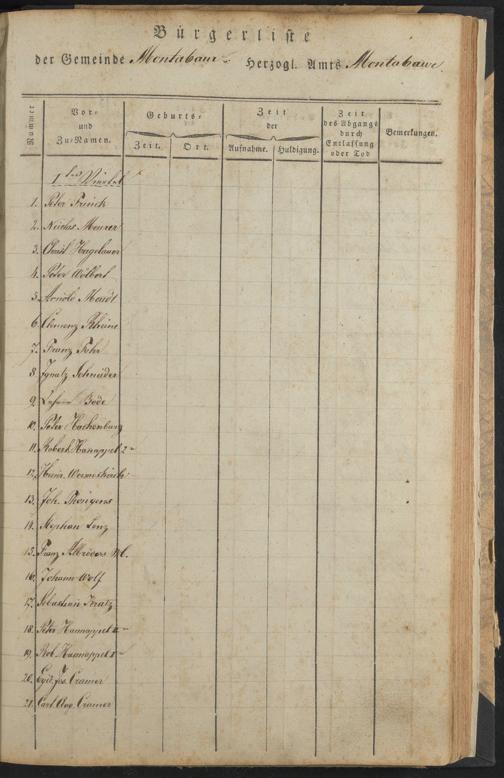 Bürgerliste
der Gemeinde Montabaur Herzogl. Amts Montabaur.
Nummer
Vor-
und
Zu-Namen.
Geburts-
Zeit.
Ort.
Zeit
der
Aufnahme.
Huldigung.
Zeit
des Abgangs
durch
Entlassung
oder Tod
Bemerkungen.
1tes Viertel
1. Peter Frinck
2. Nicolas Meurer
3. Christ. Hagelauer
4. Peter Wolbert
5. Arnold Maudt
6. Clemenz Rheins
7. Franz Fehr
8 Ignatz Schneider
9. Bode
10. Peter Hachenburg
11. Robert Hanappel 2
12. Heinr.
13. Joh.
14. Stephan Lenz
15. Franz
16. Johann Wolf
17. Sebastian Kratz
18. Peter Hannappel II
19. Rob. Hannappel I
20. Egid. Jos. Cramer
21. Carl Aug. Cramer